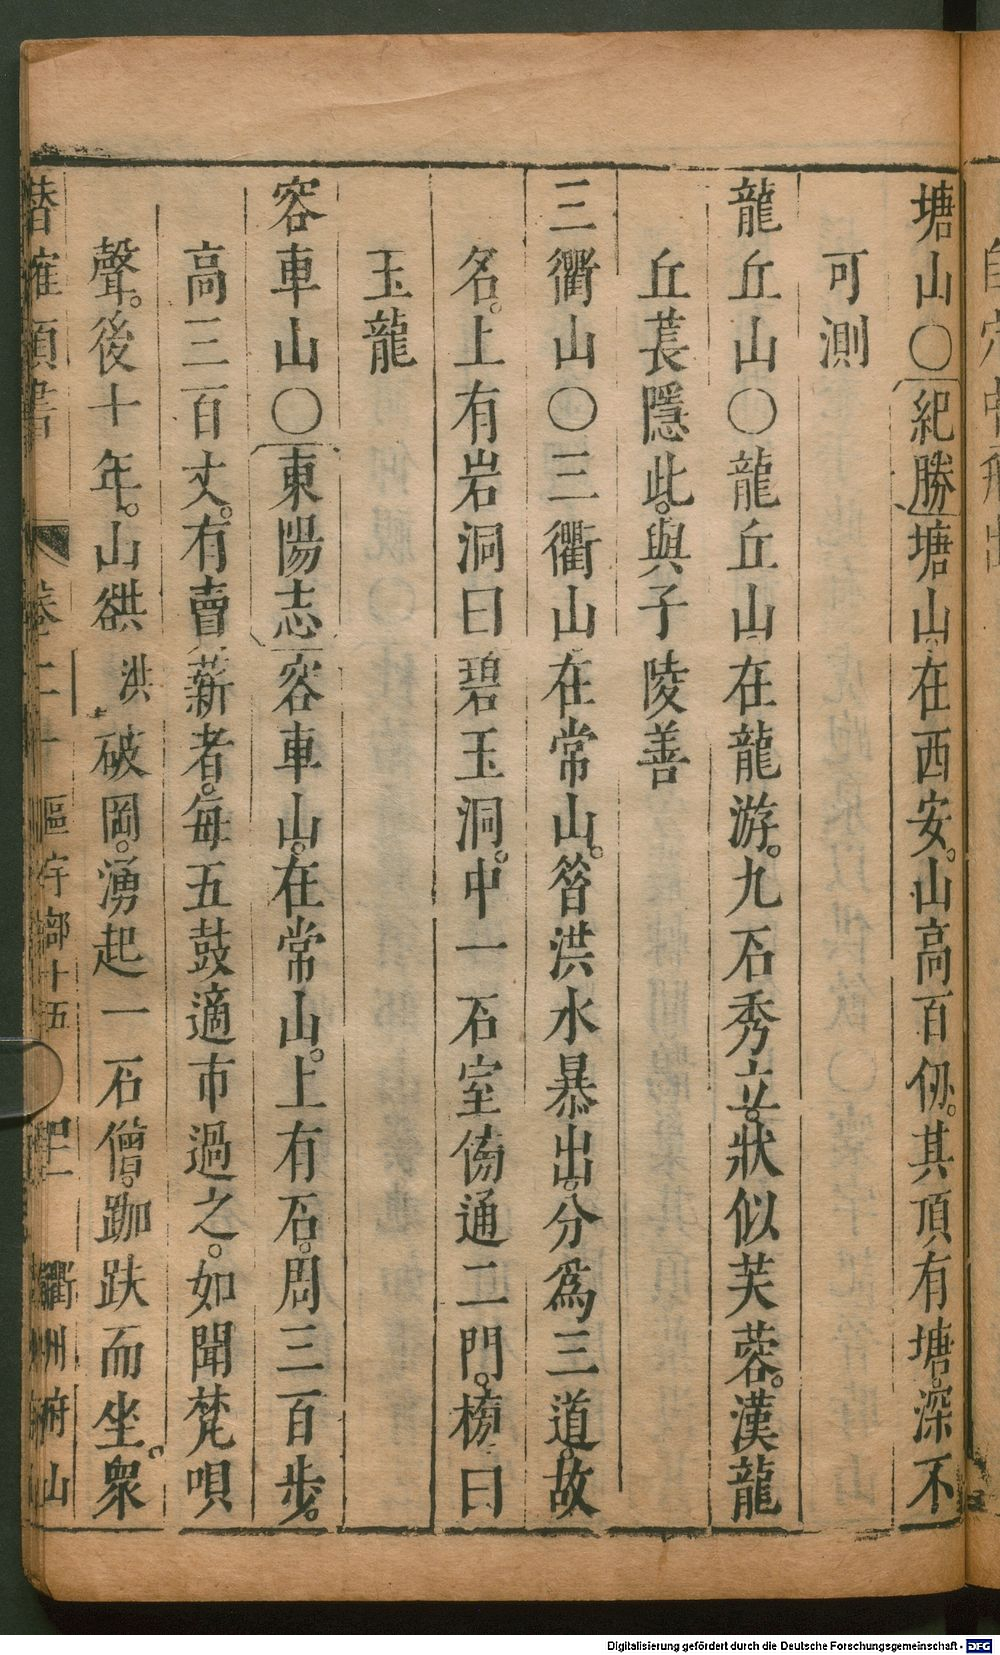 塘山〇紀勝塘山在西安。山高百仞。其頂有塘。深不
可測
龍丘山〇龍丘山在龍游。九石秀立。狀似芙蓉。漢龍
丘萇隱此。與子陵善
三衢山〇三衢山在常山。昝洪水暴出。分為三道。故
名。上有岩洞曰碧玉洞。中一石室傍通二門。榜曰
玉龍
容車山〇東陽志容車山。在常山。上有石。周三百步。
高三百丈。有賣薪者。每五鼓適市過之。如聞梵唄
聲。後十年。山谼洪破岡。湧起一石僧。跏趺而坐。眾
潛確類書 卷二十 區宇部十五 衢州府山
Digitalisierung gefördert durch die Deutsche Forschungsgemeinschaft - DFG